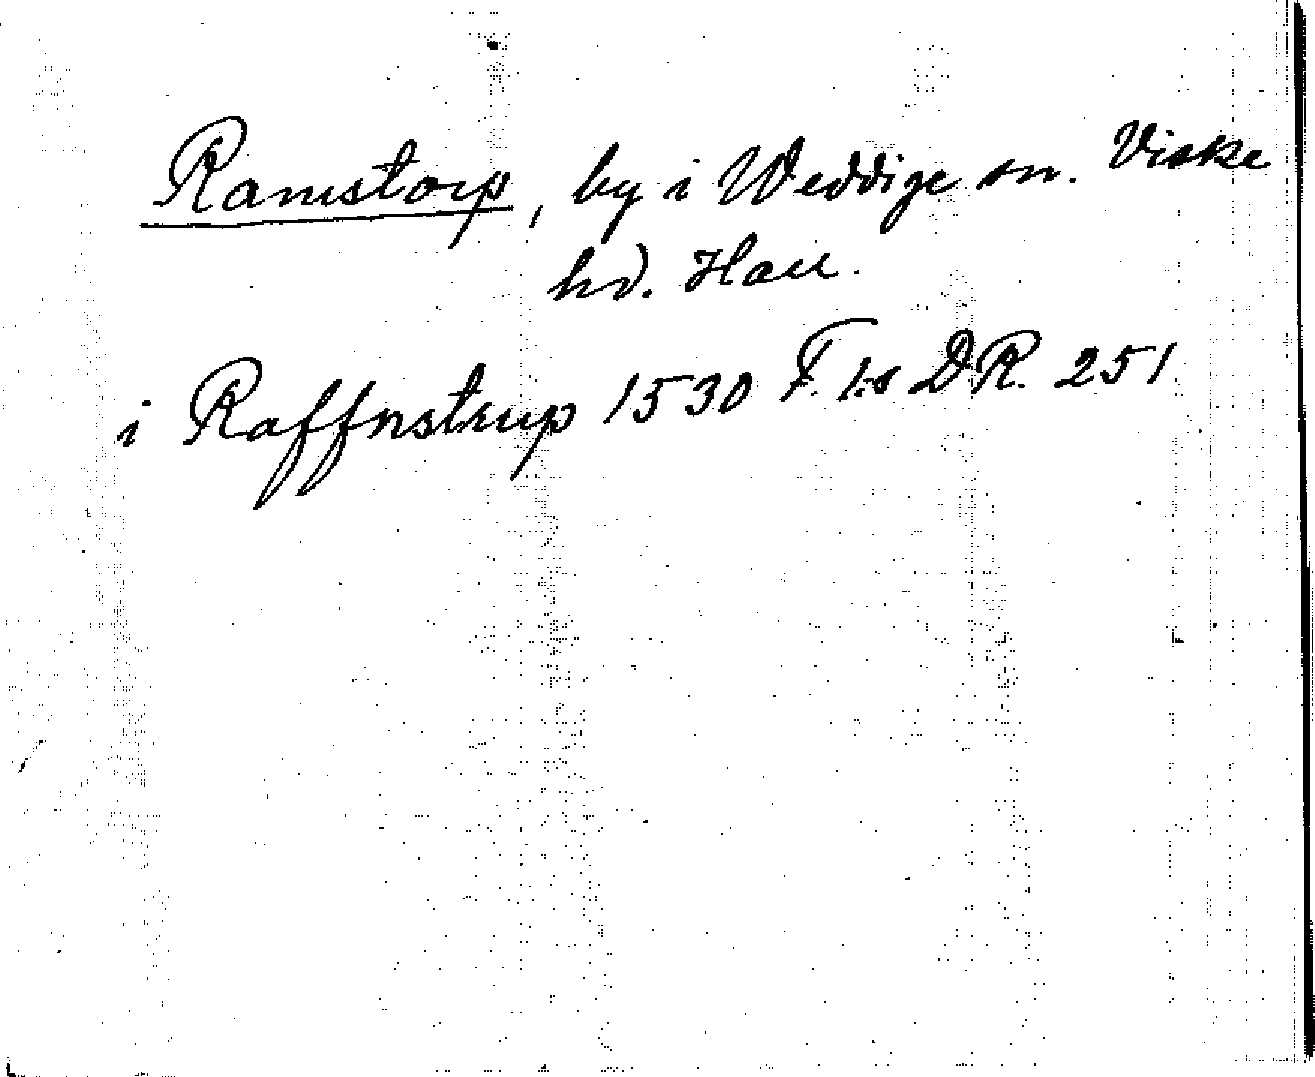 Ramstorp, by i Weddige sn. Viske
hd. Hall.
i Raffnstrup 1530 F. 1:s DR. 251